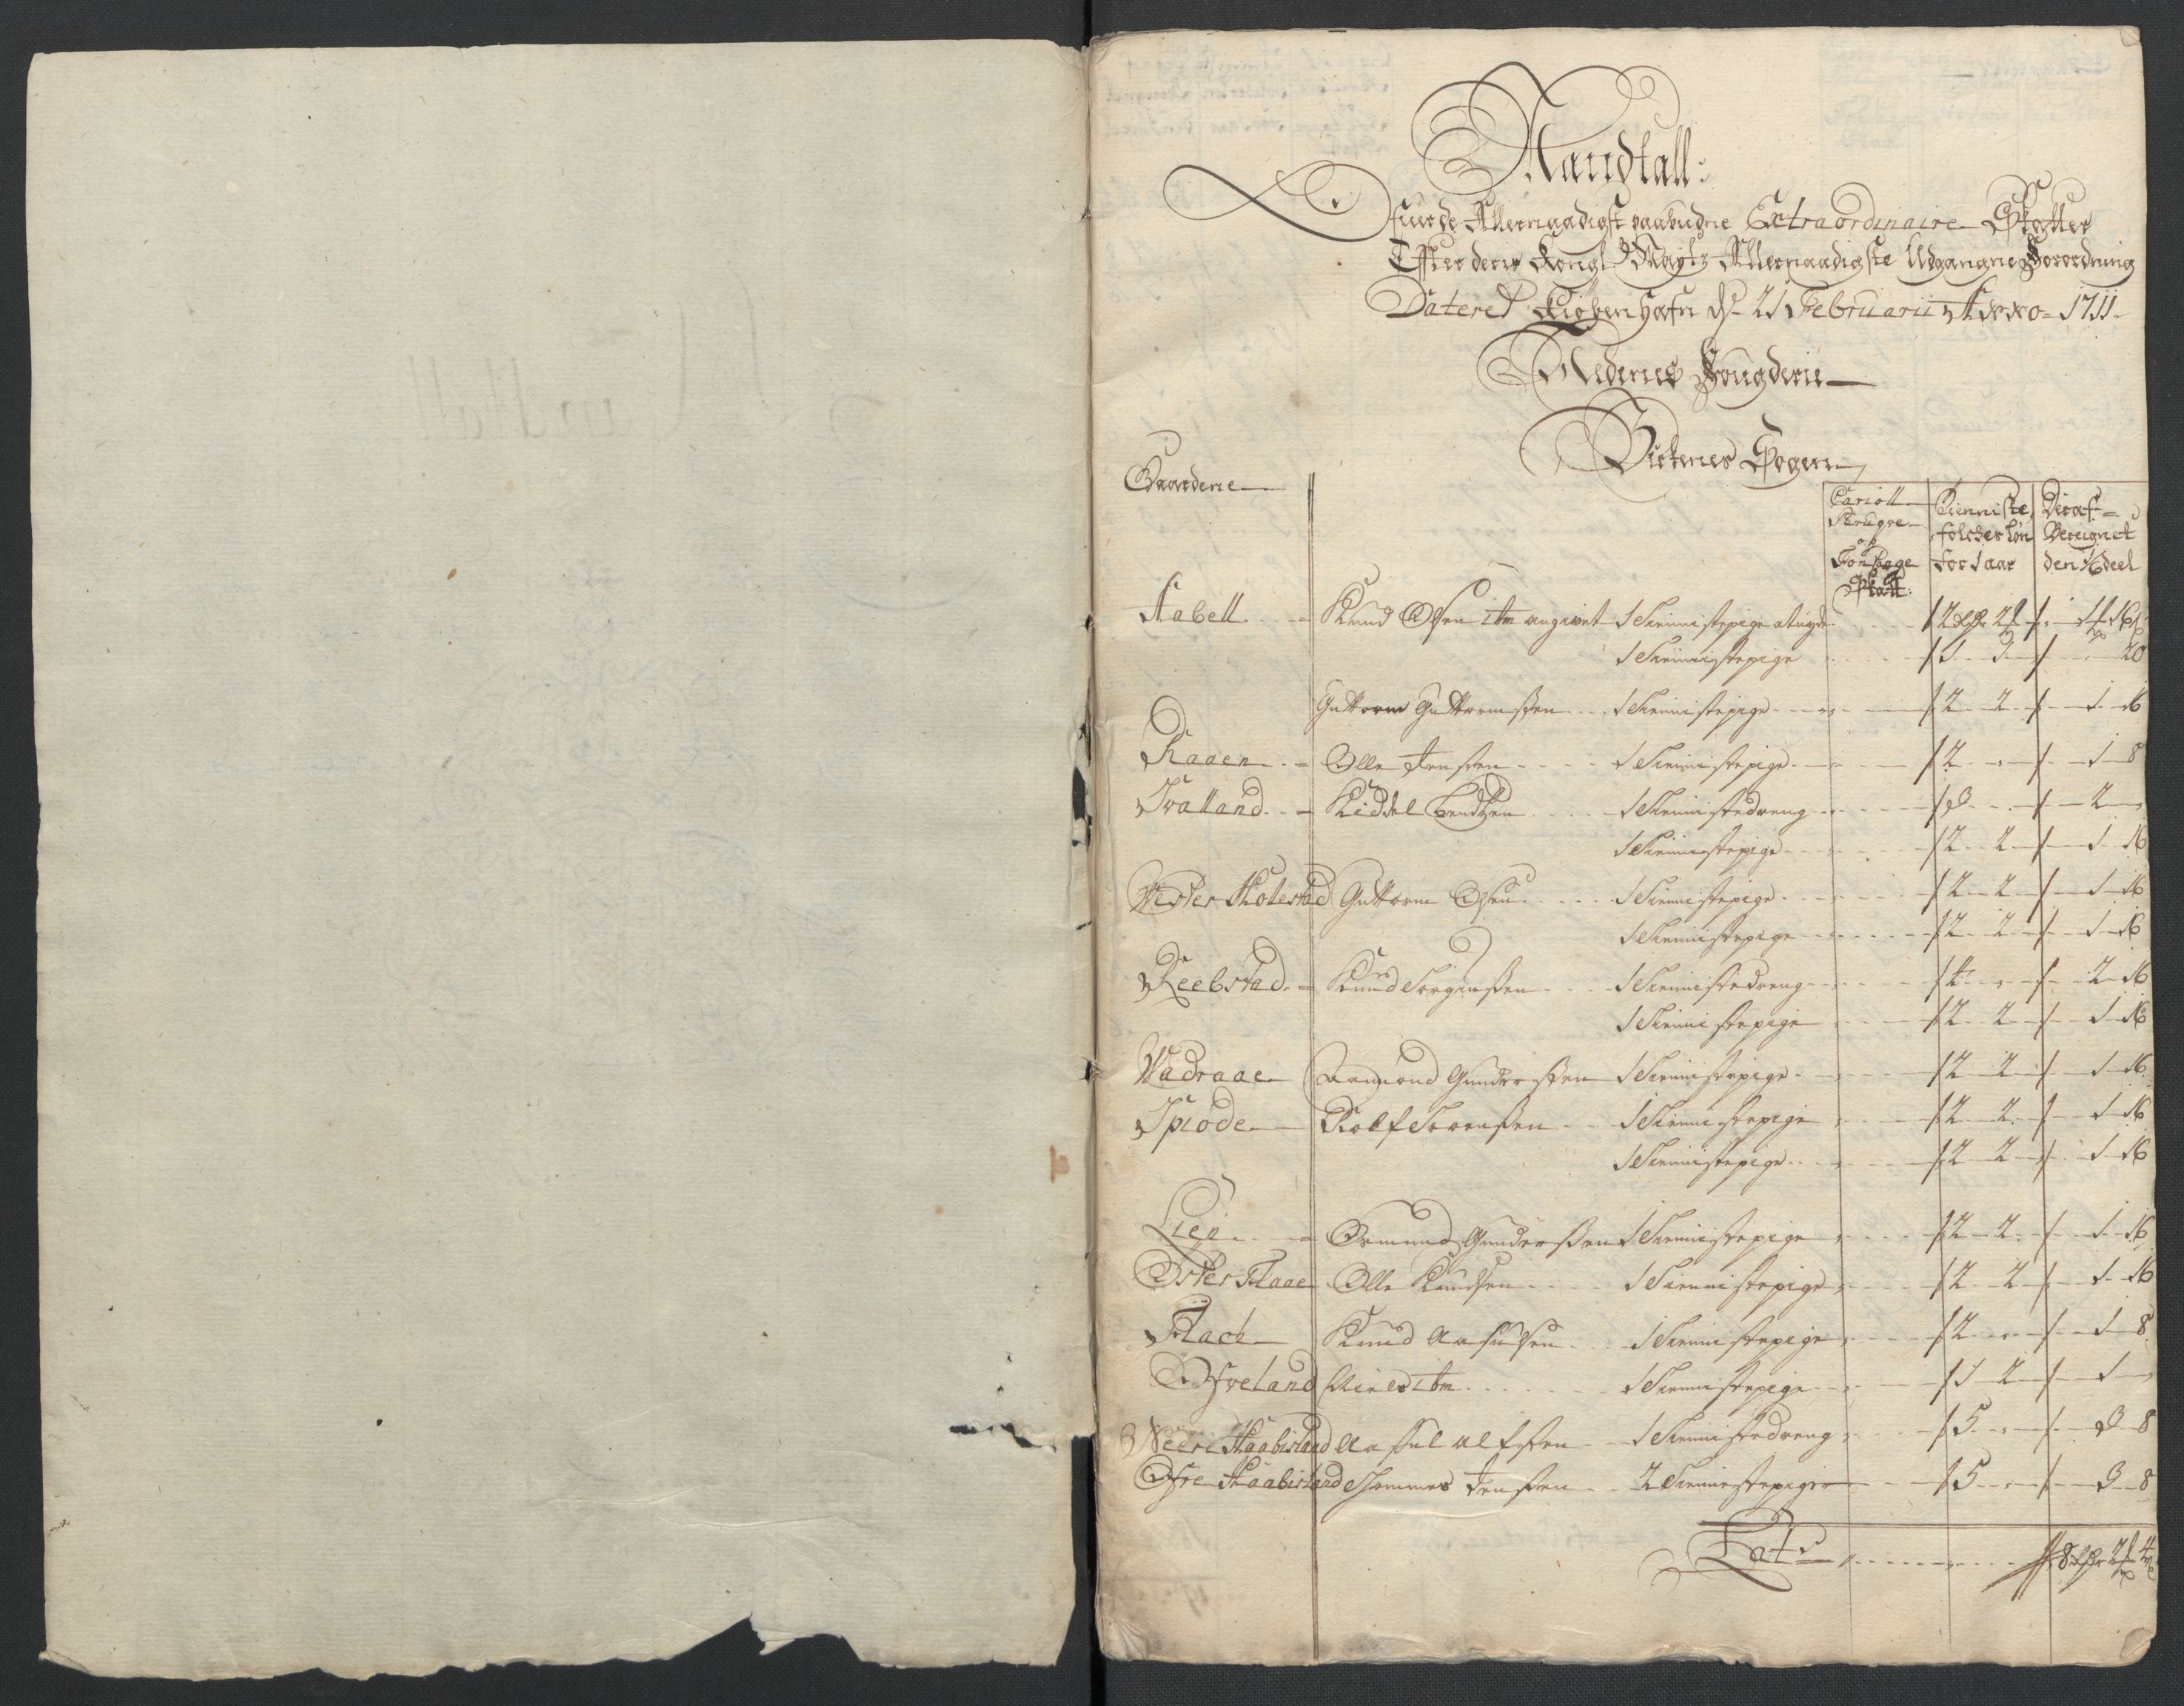 Mandtall
Ofver de Allernaadigst paabudne Extraordinaire Skatter
Efter deris Kongl: Maytz Allernaadigste Udgangne Forordning
Dateret Kiøbenhafn d: 21 Februarii Anno 1711
Nedenes Fougderie
Birkenes Sogen
Gaardene
Cariol Peruqve og Fontange Skatt:
Tienniste folckes løn for 1 aar
Deraf Bereignet den 1/6 deel
Aabell Knud Olsen itm angivet 1 Tiennistepige 2 rdr 2 1 16
1 Tiennistepige 1 3 20
Guttorm Guttormssen 1 Tiennistepige 2 2 1 16
Raaen Olle Jenssen 1 Tiennistepige 2 1 8
Tvalland Kiddel Bendtzen 1 Tiennistedreng 3 2
1 Tiennistepige 2 2 1 16
Vester Guttorm Olsen 1 Tiennistepige 2 2 1 16
1 Tiennistepige 2 2 1 16
Reebstad Knud Torgiussen 1 Tiennistedreng 4 2 16
1 Tiennistepige 2 2 1 16
Wadraae Aamund Gunderssen 1 Tiennistepige 2 2 1 16
Tpiode Rolf 1 Tiennistepige 2 2 1 16
1 Tiennistepige 2 2 1 16
Lien Ormund Gunderssen 1 Tiennistepige 2 2 1 16
Øster Flaae Olle Knudsen 1 Tiennistepige 2 2 1 16
Flach Knud Aasulsen 1 Tiennistepige 2 1 8
Øfveland Niels itm 1 Tiennistepige 1 2 1
Neere Haabistaad Aasul Alfsen 1 Tiennistedreng 5 3 8
Øfre Haabistaad Thommes Jenssen 2 Tiennistepiger 5 3 8
Lat. 8 rdr 2 4